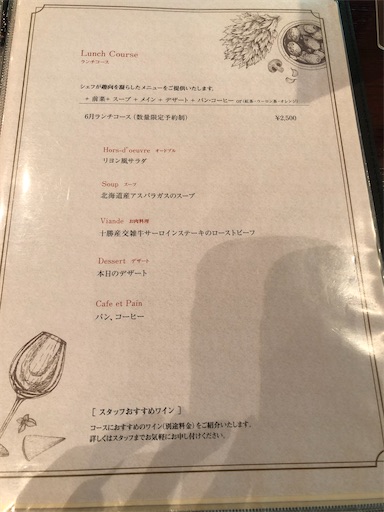 Lunch Course
ランチコース
シェフが趣向を凝らしたメニューをご提供いたします。
+ 前菜+ スープ + メイン + デザート + パン・コーヒー or (紅茶・ウーロン茶・オレンジ)
6月ランチコース (数量限定予約制) ¥2,500
Hors-d'oeuvre オードブル
リヨン風サラダ
Soup スープ
北海道産アスパラガスのスープ
Viande お肉料理
十勝産交雑牛サーロインステーキのローストビーフ
Dessert デザート
本日のデザート
Cafe et Pain
パン、コーヒー
[ スタッフおすすめワイン ]
コースにおすすめのワイン(別途料金)をご紹介いたします。
詳しくはスタッフまでお気軽にお申し付けください。